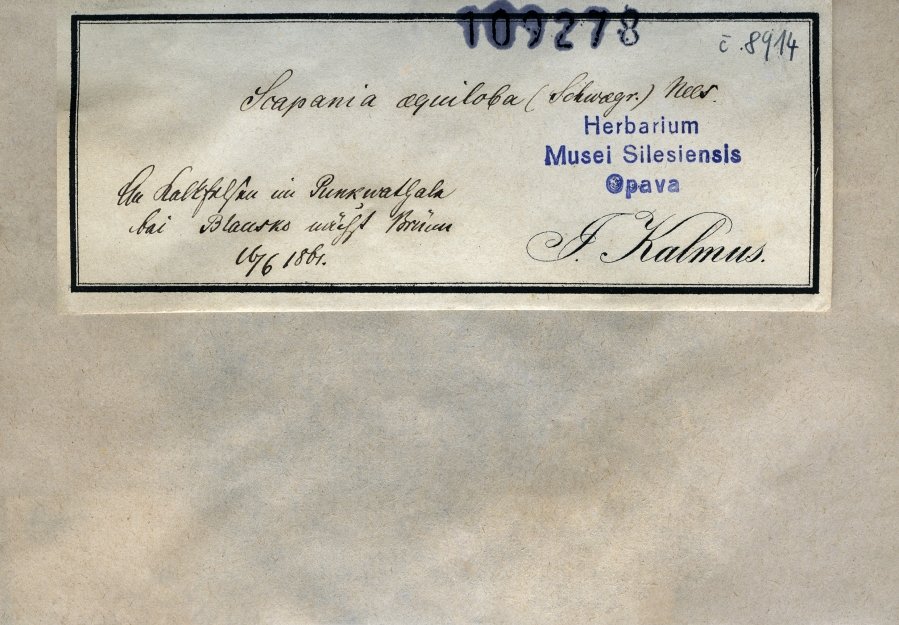 109278
č. 8914
Scapania æquiloba (Schwægr.) Nees.
Herbarium
Musei Silesiensis
Opava
An Kalkfelsen im Punkwathale
bei Blansko nächst Brünn
16/6 1861.
J. Kalmus.